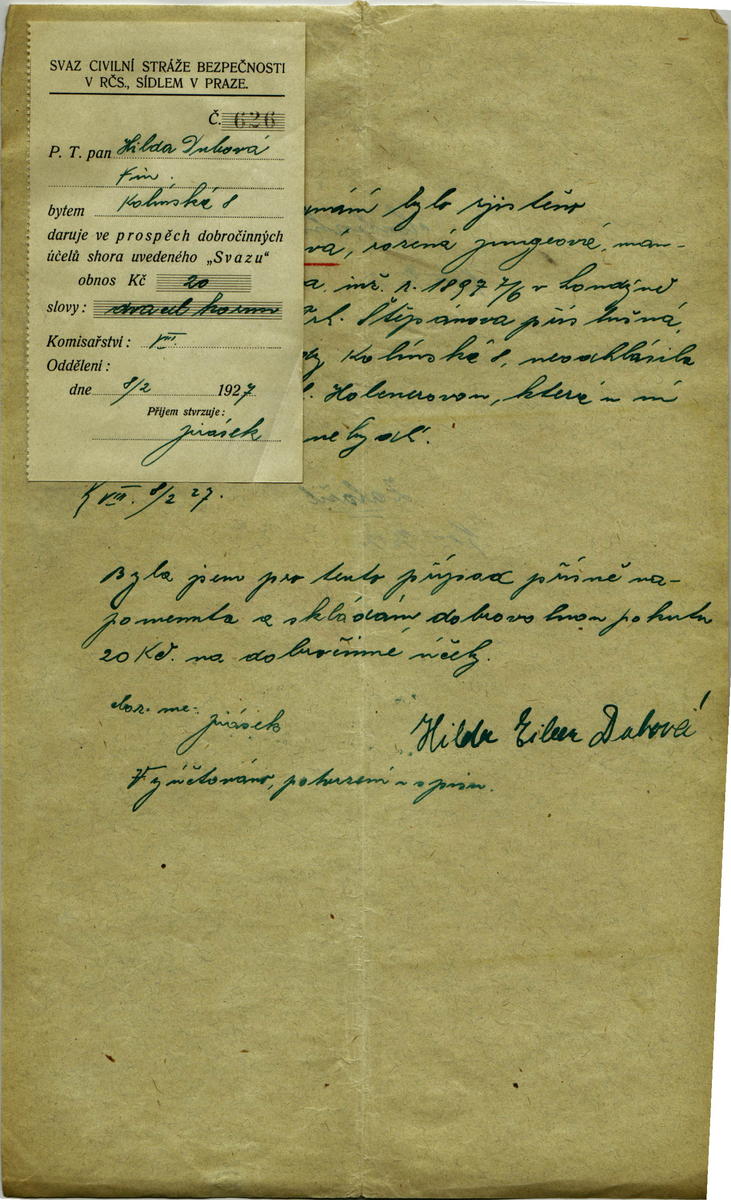 SVAZ CIVILNÍ STRÁŽE BEZPEČNOSTI
V RČS., SÍDLEM V PRAZE.
Č. 626
P. T. pan Hilda Dubová
bytem Kolínská 8
daruje ve prospěch dobročinných
účelů shora uvedeného „Svazu“
obnos Kč 20
slovy: dvacet korun
Komisařství: VIII.
Oddělení:
dne 8/2 1927
Příjem stvrzuje:
Jirásek
bylo zjištěno
vá, rozená Jungeová, man-
a inž. n. 1897 7/6 v Londýně
Štěpánova příslušná,
Kolínská 8, neodhlásila
Holenerovou, která u ní
nebydlí.
VIII. 8/2 27.
Byla jsem pro tento případ přísně na-
pomenuta a skládám dobrovolnou pokutu
20 Kč. na dobročinné účely.
Jirásek
Hilda Eileen Dubová
Vyúčtováno, potvrzení v spisu.